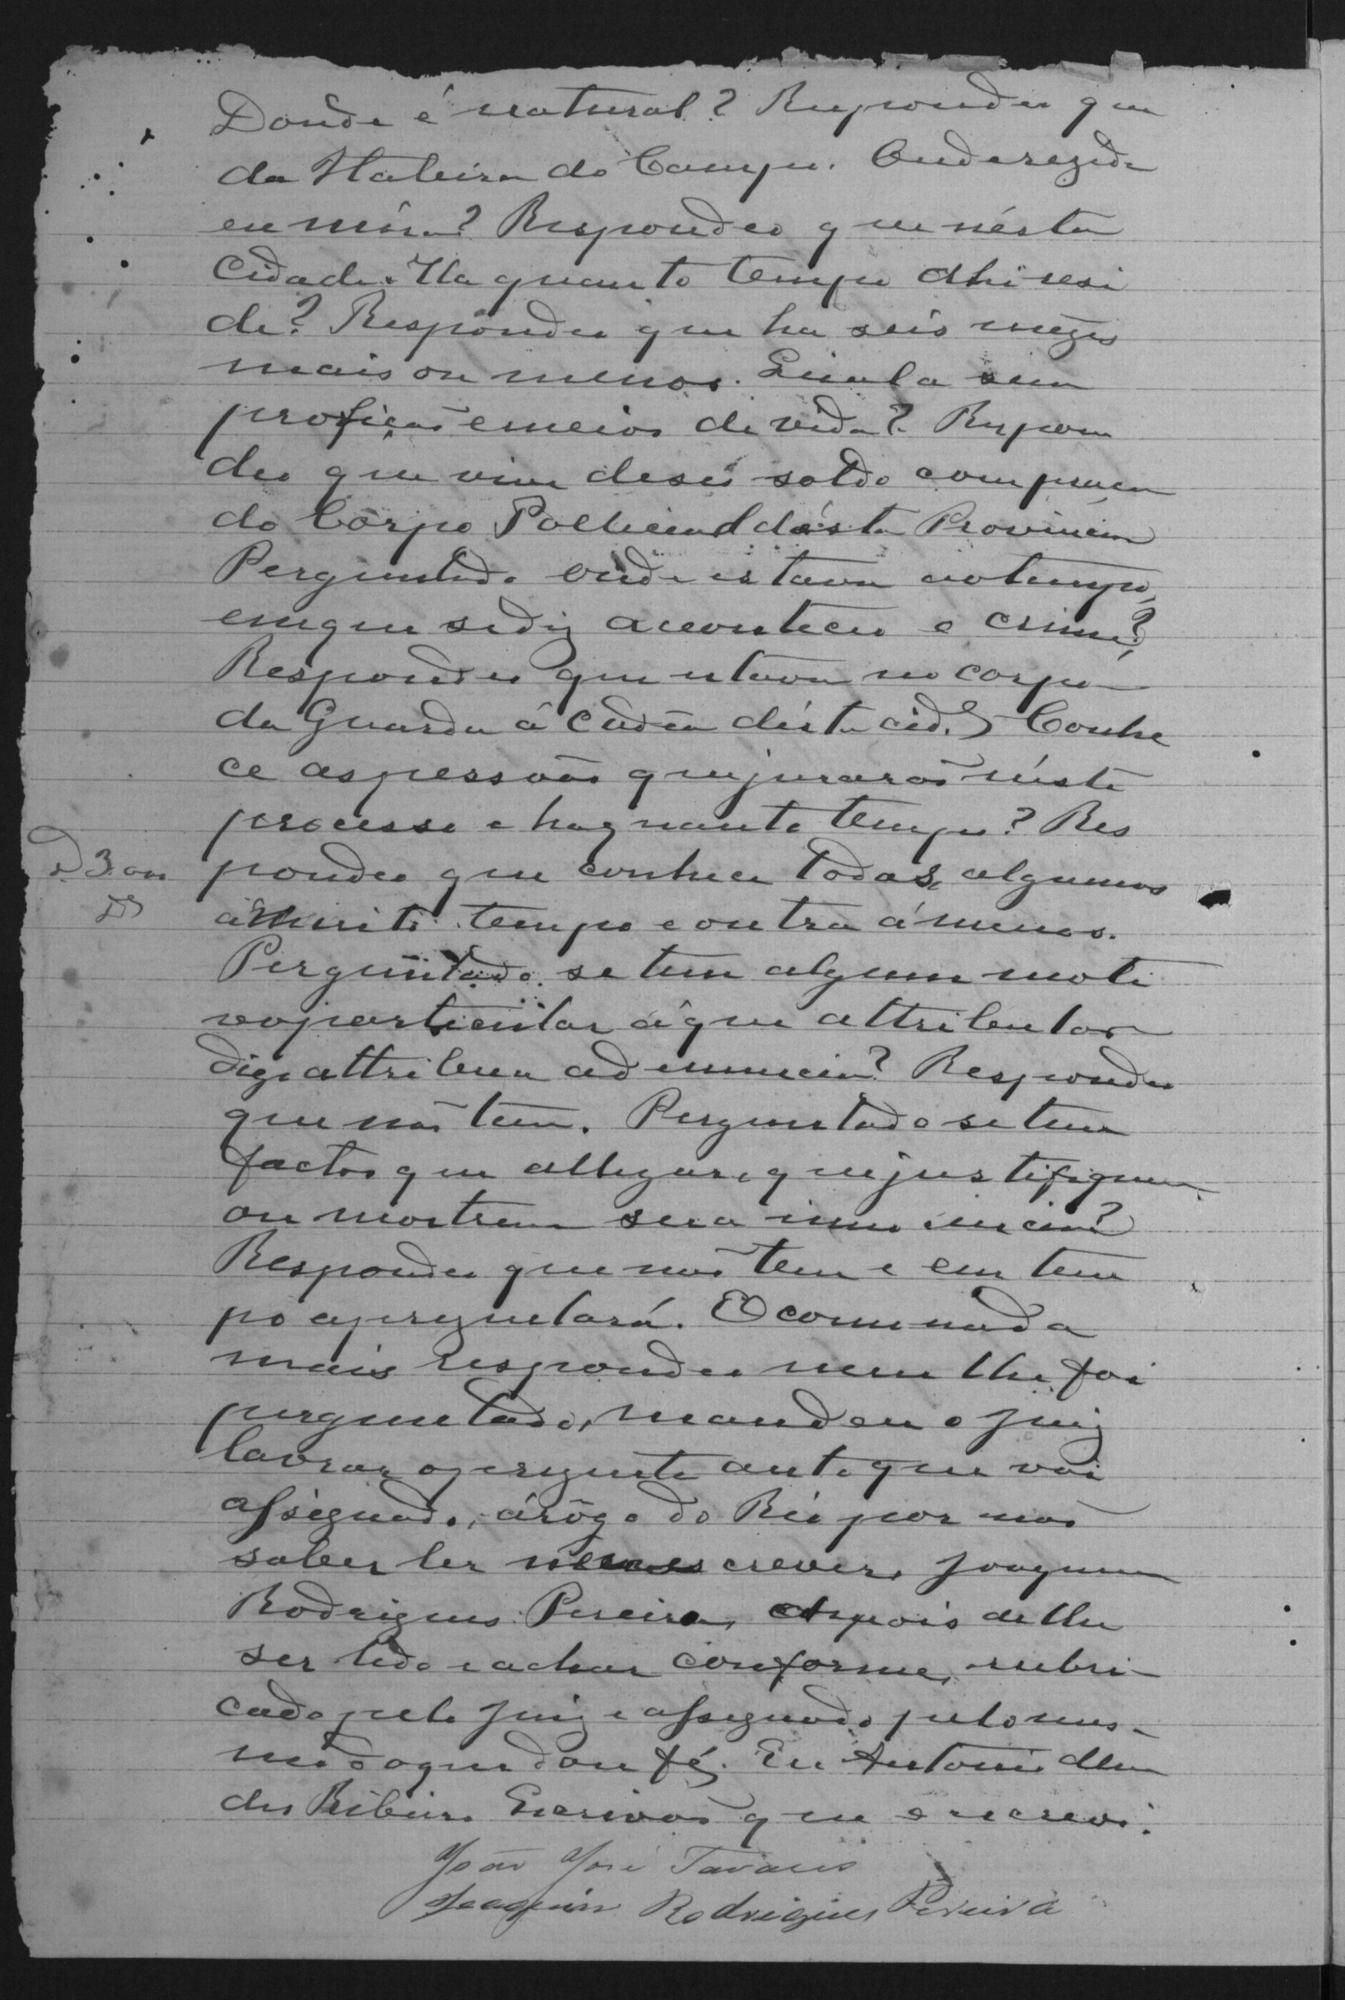 Donde é natural? Respondeu que
da Itabeira do Campo. Onde rezide
ou móra? Respondeu que nésta
Cidade. Ha quanto tempo ahi resi
de? Respondeu que ha seis mezes
mais ou menos. Qual a sua
profição e meios de vida? Respon
deo que vive de seu soldo como praça
do Corpo Pollicial désta Provincia
Perguntado onde estava ao tempo,
em que se diz aconteceu o crime?
Respondeu que estava no corpo
da Guarda á cadêa désta cid.e Conhe
ce as pessôas que jurarão néste
processo e ha quanto tempo? Res
pondeo que conhece todas, algumas
á muito tempo e outra á menos.
Perguntado se tem algum moti
vo particular á que attribular
digo attribua a denuncia? Respondeu
que não tem. Perguntado se tem
factos que allegar, que justifiquem
ou mostrem sua innocencia?
Respondeu que não tem e em tem
po aprezentará. E como nada
mais respondeu nem lhe foi
perguntado, mandou o Juiz
lavrar o prezente auto que vai
assignado, á rôgo do Réo por não
saber ler nem escrever, Joaquim
Rodrigues Pereira, depois de lhe
ser lido e achar conforme, rubri-
cado pelo Juiz e assignado pelo mes-
mo do que dou fé. Eu Antonio Men
des Ribeiro Escrivão que o escrevi.
João José Tavares
Joaquim Rodrigues Pereira